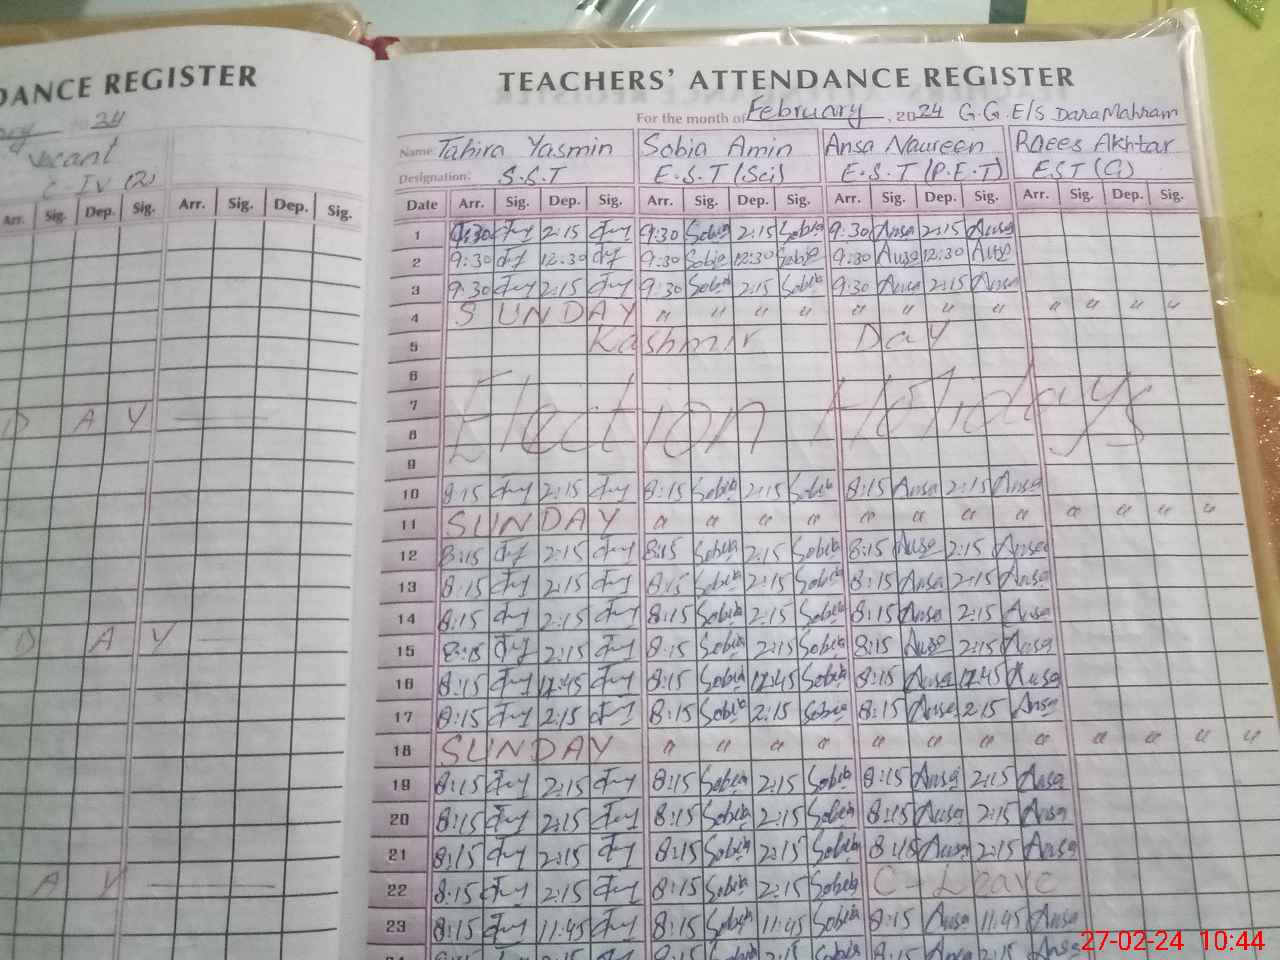 DANCE REGISTER
24
vacant
C-IV (2)
Arr. Sig. Dep. Sig. Arr. Sig. Dep. Sig.
D A Y
D A Y
A Y
TEACHERS' ATTENDANCE REGISTER
For the month of February, 2024 G.G.E/S Dara Mahram
Name Tahira Yasmin Sobia Amin Ansa Naureen Raees Akhtar
Designation: S.S.T E.S.T (Sci) E.S.T (P.E.T) E.S.T (G)
Date Arr. Sig. Dep. Sig. Arr. Sig. Dep. Sig. Arr. Sig. Dep. Sig. Arr. Sig. Dep. Sig.
1 9:30 2:15 9:30 Sobia 2:15 Sobia 9:30 Ansa 2:15 Ansa
2 9:30 12:30 9:30 Sobia 12:30 Sobia 9:30 Ansa 12:30 Ansa
3 9:30 2:15 9:30 Sobia 2:15 Sobia 9:30 Ansa 2:15 Ansa
4 SUNDAY " " " " " " " " " " " "
5 Kashmir Day
6
7 Election Holidays
8
9
10 8:15 2:15 8:15 Sobia 2:15 Sobia 8:15 Ansa 2:15 Ansa
11 SUNDAY " " " " " " " " " " " "
12 8:15 2:15 8:15 Sobia 2:15 Sobia 8:15 Ansa 2:15 Ansa
13 8:15 2:15 8:15 Sobia 2:15 Sobia 8:15 Ansa 2:15 Ansa
14 8:15 2:15 8:15 Sobia 2:15 Sobia 8:15 Ansa 2:15 Ansa
15 8:15 2:15 8:15 Sobia 2:15 Sobia 8:15 Ansa 2:15 Ansa
16 8:15 12:45 8:15 Sobia 12:45 Sobia 8:15 Ansa 12:45 Ansa
17 8:15 2:15 8:15 Sobia 2:15 Sobia 8:15 Ansa 2:15 Ansa
18 SUNDAY " " " " " " " " " " " "
19 8:15 2:15 8:15 Sobia 2:15 Sobia 8:15 Ansa 2:15 Ansa
20 8:15 2:15 8:15 Sobia 2:15 Sobia 8:15 Ansa 2:15 Ansa
21 8:15 2:15 8:15 Sobia 2:15 Sobia 8:15 Ansa 2:15 Ansa
22 8:15 2:15 8:15 Sobia 2:15 Sobia C-Leave
23 8:15 11:45 8:15 Sobia 11:45 Sobia 8:15 Ansa 11:45 Ansa
27-02-24 10:44